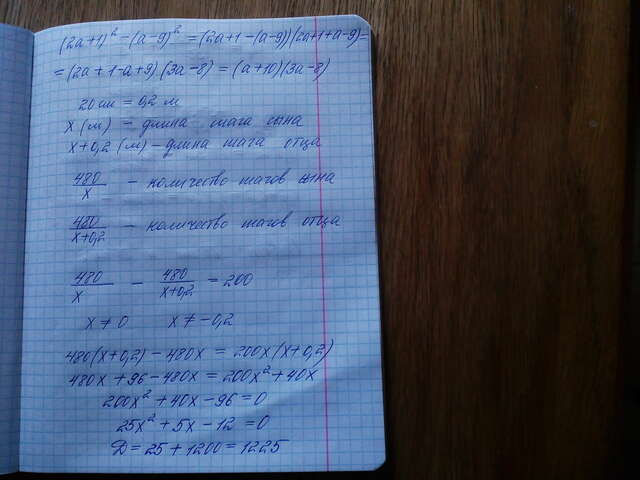 (2a+1)² - (a-9)² = (2a+1-(a-9))(2a+1+a-9)=
= (2a+1-a+9)·(3a-8) = (a+10)(3a-8)
20 см = 0,2 м
x (м) - длина шага сына
x+0,2 (м) - длина шага отца
480/x - количество шагов сына
480/(x+0,2) - количество шагов отца
480/x - 480/(x+0,2) = 200
x ≠ 0 x ≠ -0,2
480(x+0,2) - 480x = 200x(x+0,2)
480x + 96 - 480x = 200x² + 40x
200x² + 40x - 96 = 0
25x² + 5x - 12 = 0
D = 25 + 1200 = 1225